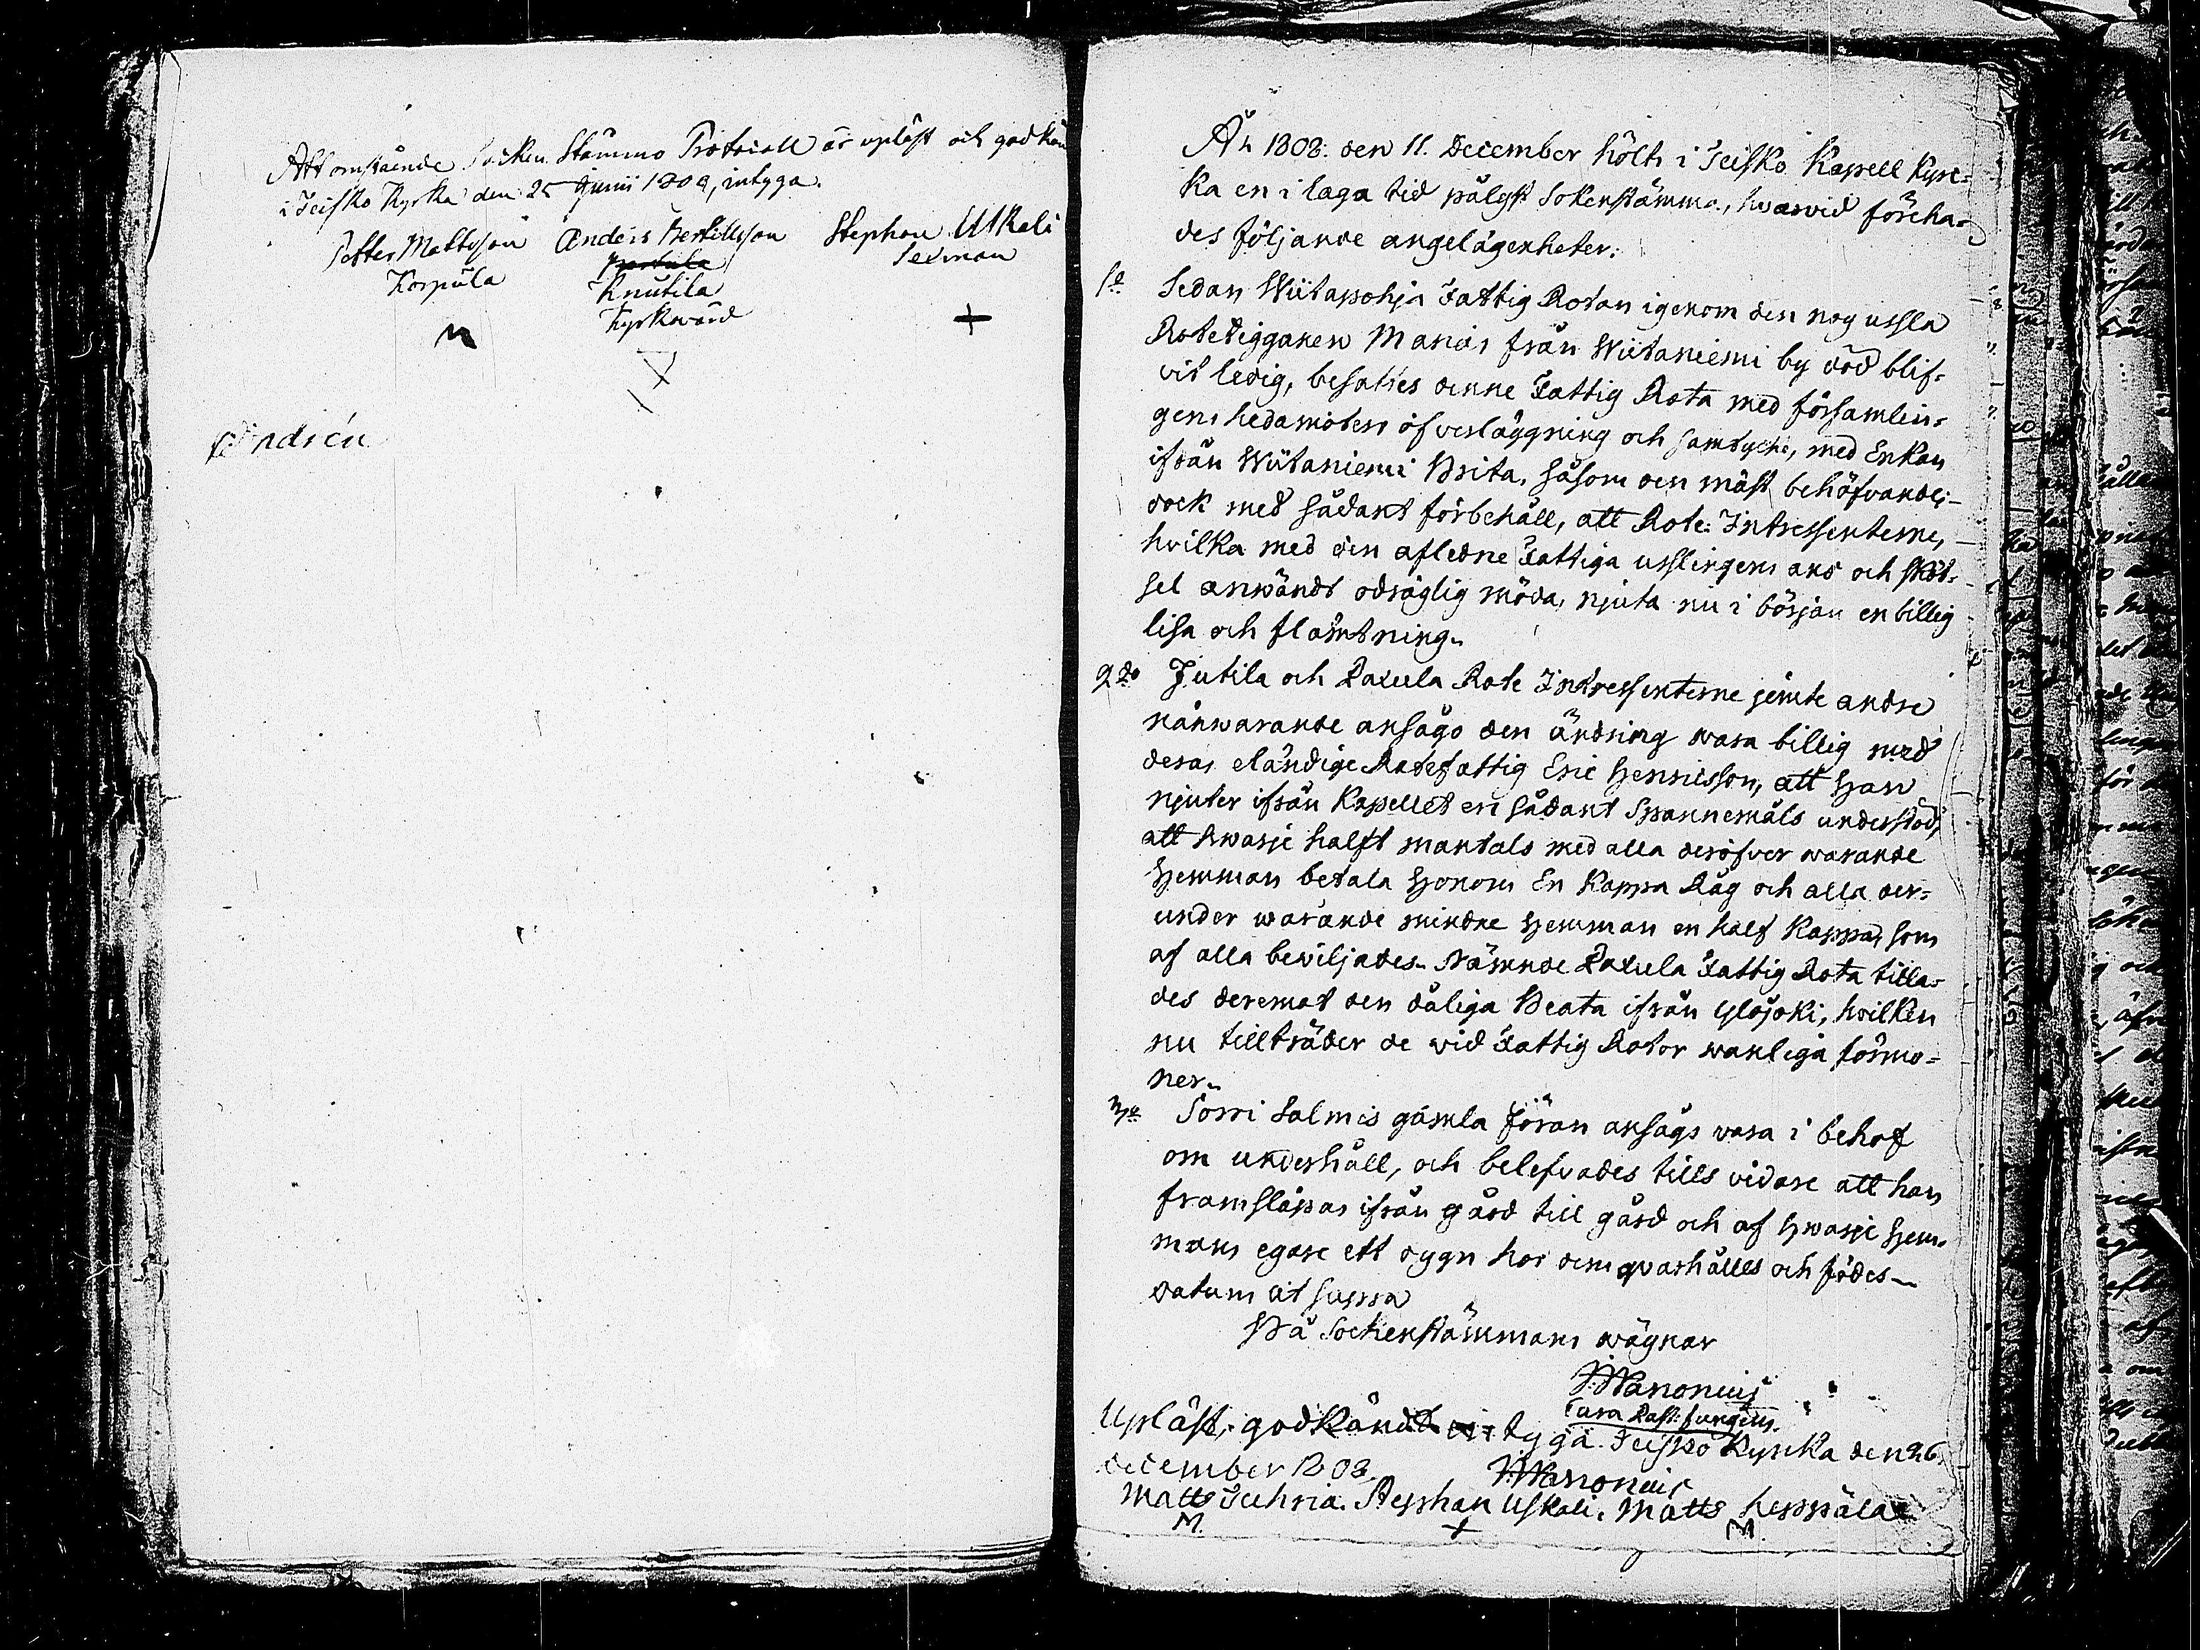 Att omstående Socken Stämmo Protocoll är upläst och godkän
i Teisko Kyrka den 25 Junii 1808, intyga.
Petter Mattsson Anders Bertillsson Stephan Uskali
Korpula Knutila Sexman
Kyrkovärd
År 1808. den 11. December hölts i Teisko Kapell Kyr=
ka en i laga tid pålyst Sokenstämma, hvarvid föreha=
des följande angelägenheter.
1o Sedan Wiitapohja Fattig Rotan igenom den nog usla
Rotetiggaren Marias från Wiitaniemi by död blif=
vit ledig, besattes denne Fattig Rota med församlin=
gens hedamöters öfverläggning och samtycke, med Enkan
ifrån Wiitaniemi Brita, såsom den mäst behöfvande;
dock med sådant förbehåll, att Rote: Intressenterne,
hvilka med den afledne Fattiga usslingens ans och sköt=
sel anwändt odräglig möda, njuta nu i början en billig
lisa och flämtning.
2do Jutila och Paxula Rote Intressenterne jemte andre
närwarande ansågo den ändring wara billig med
deras eländige Rotefattig Eric Henricsson, att Han
njuter ifrån Kapellet en sådant Spannemåls understöd,
att hwarje halft mantals med alla deröfver warande
Hemman betala Honom En Kappa Råg och alla der=
under warande mindre Hemman en half Kappa, som
af alla beviljades. Nämnde Paxula Fattig Rota tilla=
des deremot den dåliga Beata ifrån Ylöjoki, hvilken
nu tillträder de wid Fattig Rotor wanliga förmo=
ner.
3o Sorri Salmis gamla Föran ansågs vara i behof
om underhåll, och belefvades tills vidare att han
framsläpas ifrån gård till gård och af Hwarje Hem=
mans egare ett dygn hos dem qvarhålles och födes
Datum ut supra
På Sockenstämmans wägnar
J. Wanonius
Cura Past: fungens.
Upläst, godkändt intyga. Teisko Kyrka den 26.
december 1808. J. Wanonius
Matts Tuhria. Stephan Uskali. Matts Leppälä
M. + M.